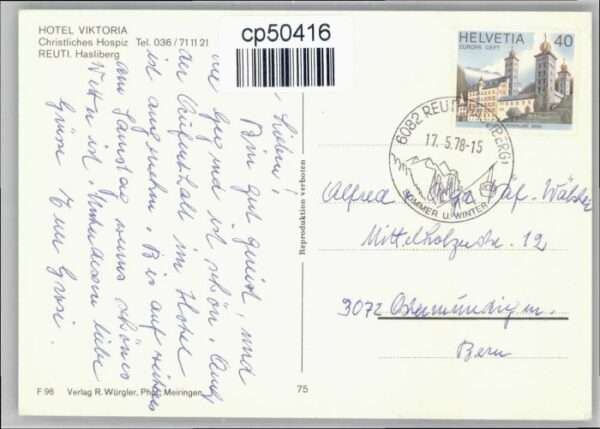 HOTEL VIKTORIA
Christliches Hospiz Tel. 036/71 11 21
REUTI, Hasliberg
cp50416
HELVETIA 40
EUROPA CEPT
6082 REUTI (HASLIBERG)
17.5.78-15
SOMMER U. WINTER
Ihr Lieben!
Bin gut gereist, und
die Gegend ist schön. Auch
der Aufenthalt im Hotel
ist angenehm. Bis auf weiteres
am Samstag wenn schönes
Wetter ist. Unterdessen liebe
Grüsse Eure
Alfred
Mittelholzerstr. 12
3072 Ostermundigen
Bern
Reproduktion verboten
F 96 Verlag R. Würgler, Phot. Meiringen
75